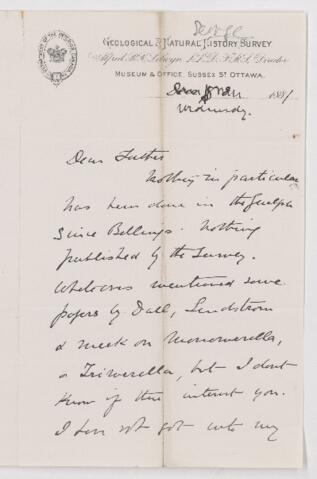 George
GEOLOGICAL & NATURAL HISTORY SURVEY
Alfred R. C. Selwyn LL.D. F.R.S. Director
MUSEUM & OFFICE, SUSSEX ST. OTTAWA.
188
Wednesday.
Dear Father
Nothing in particular
has been done in the Guelph
since Billings. Nothing
published by the Survey.
Whiteaves mentioned some
papers by Dall, Lindstrom
& Meek on Monomerella,
or Trimerella, but I dont
know if they interest you.
I have not got into my